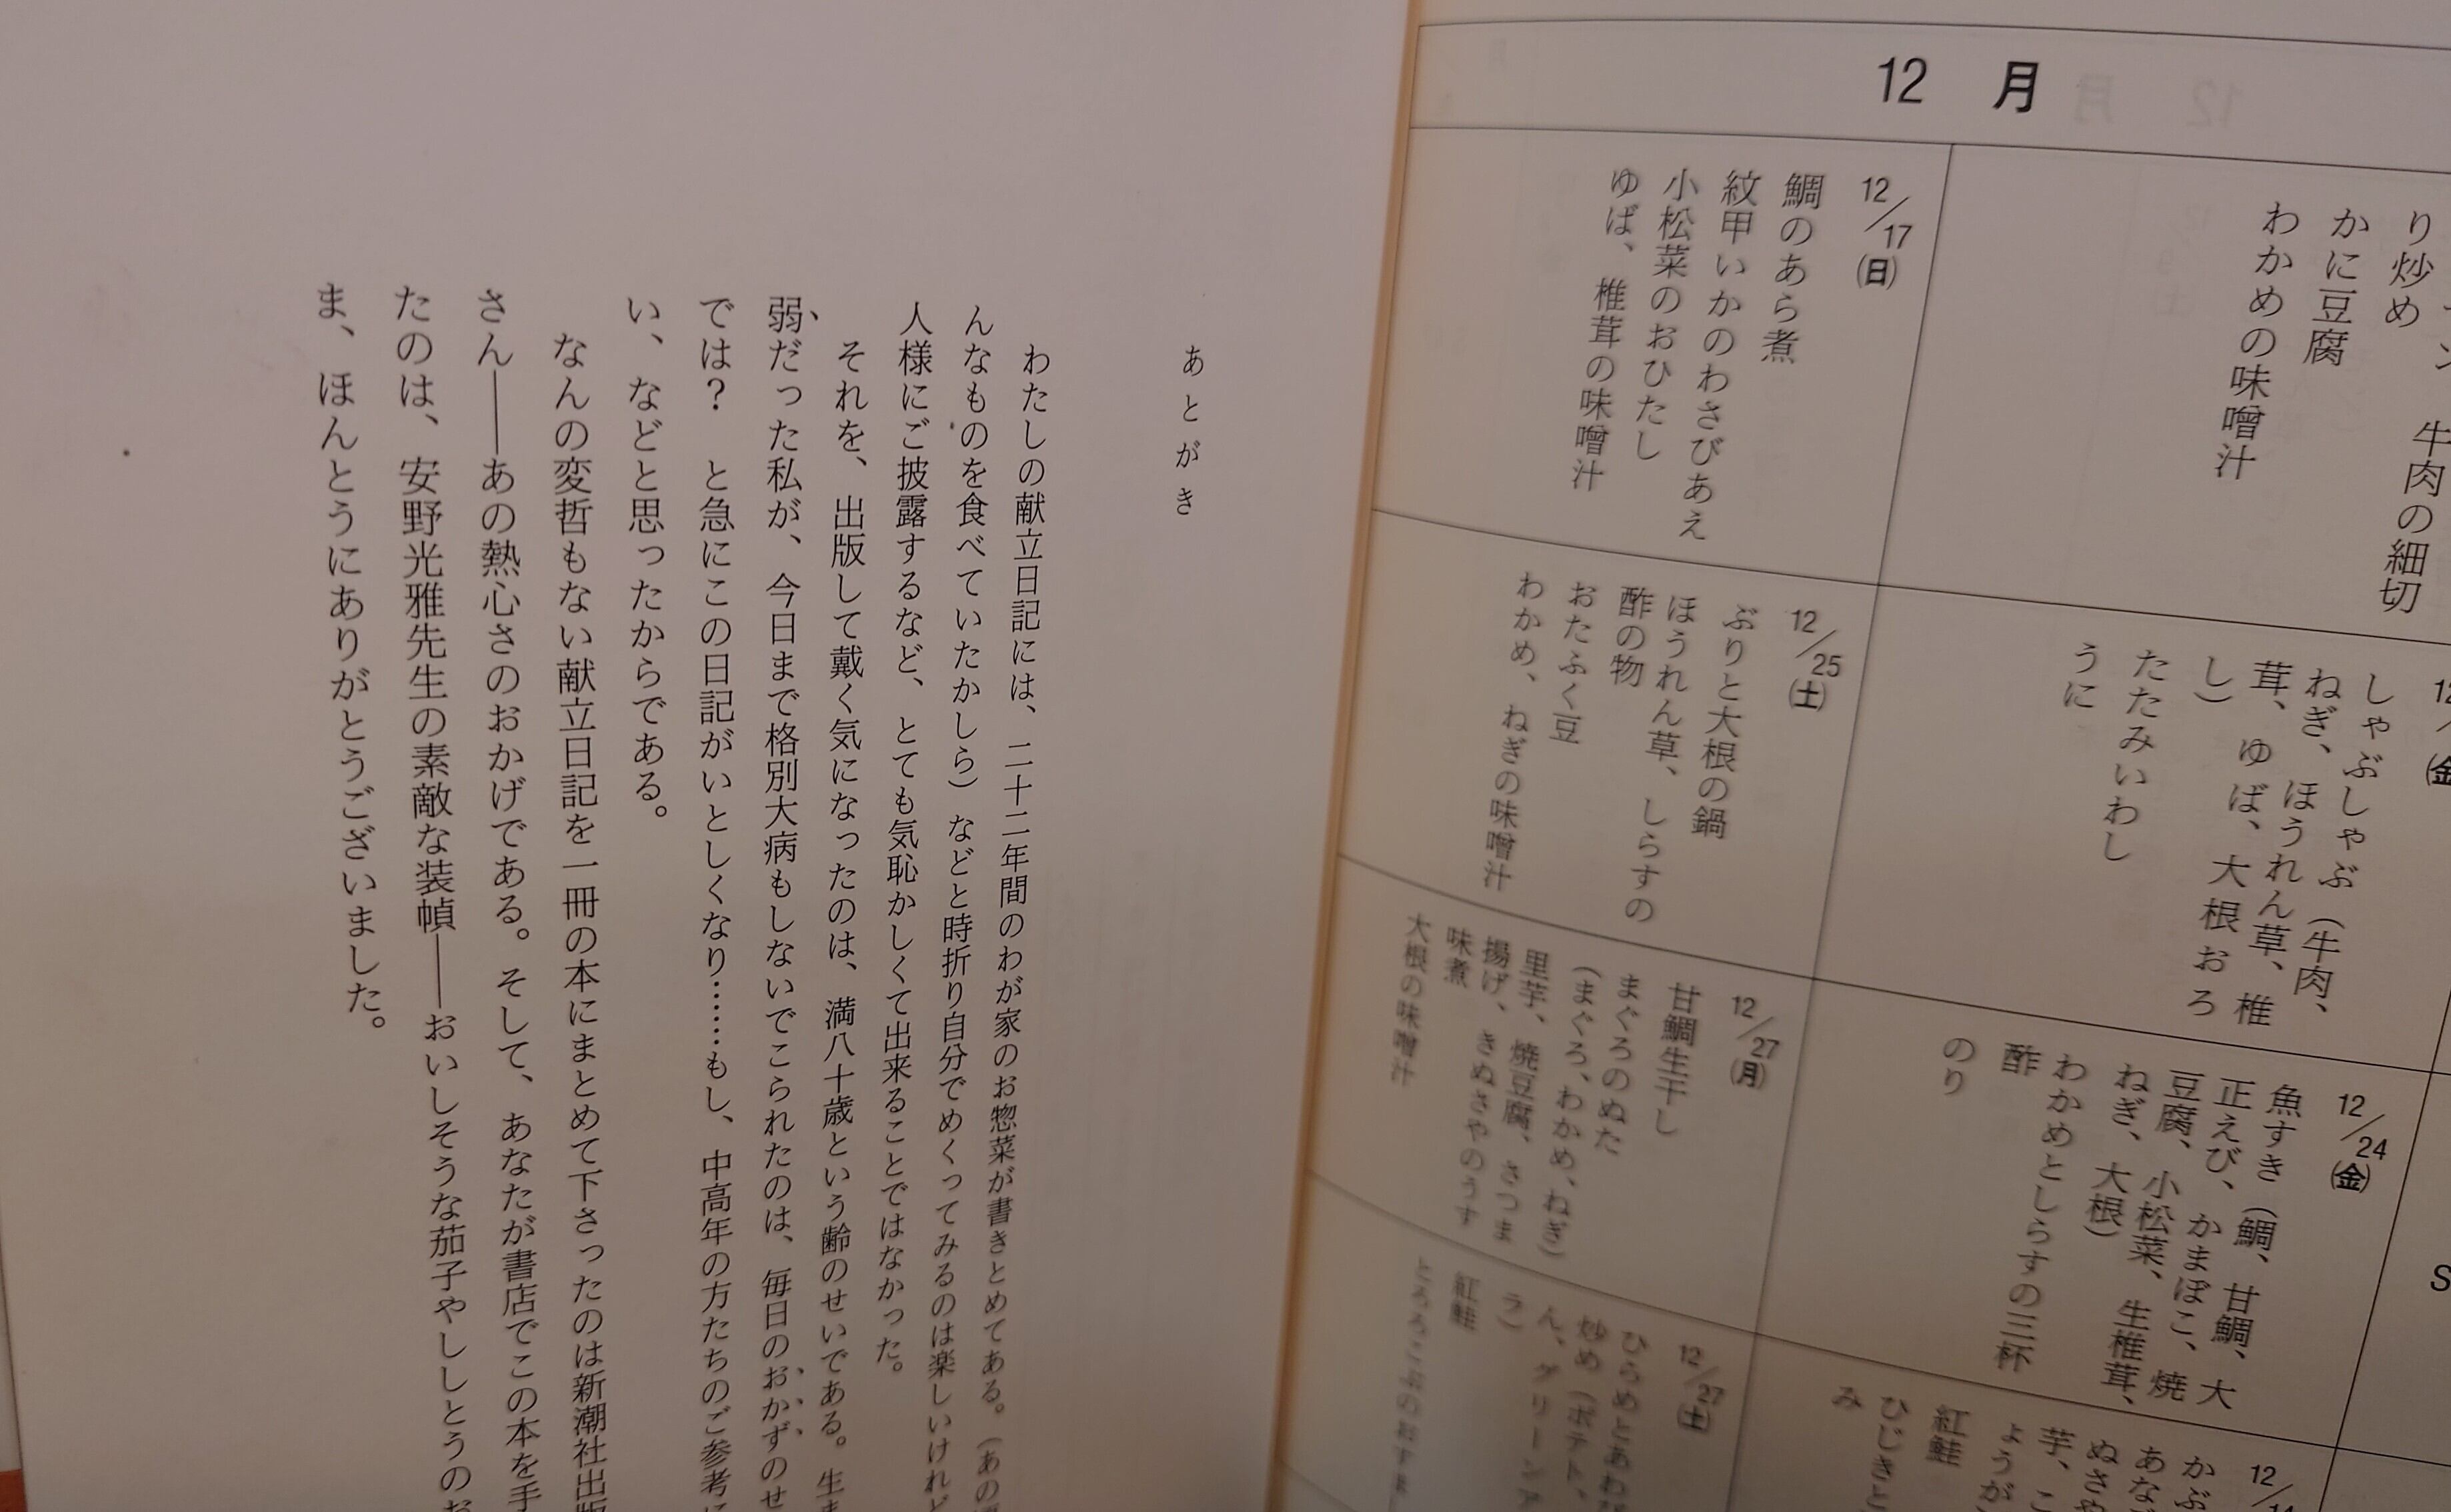 12月
り炒め
牛肉の細切
かに豆腐
わかめの味噌汁
12/17(日)
鯛のあら煮
紋甲いかのわさびあえ
小松菜のおひたし
ゆば、椎茸の味噌汁
しゃぶしゃぶ(牛肉、
ねぎ、ほうれん草、椎
茸、ゆば、大根おろ
し)
たたみいわし
うに
12/25(土)
ぶりと大根の鍋
ほうれん草、しらすの
酢の物
おたふく豆
わかめ、ねぎの味噌汁
12/24(金)
魚すき(鯛、甘鯛、大
正えび、かまぼこ、焼
豆腐、小松菜、生椎茸、
ねぎ、大根)
わかめとしらすの三杯
酢
のり
12/27(月)
甘鯛生干し
まぐろのぬた
(まぐろ、わかめ、ねぎ)
里芋、焼豆腐、さつま
揚げ、きぬさやのうす
味煮
大根の味噌汁
紅鮭
ひじきと
み
12/27(土)
ひらめとあわび
炒め(ポテト、
ん、グリーンア
ラ)
紅鮭
あとがき
わたしの献立日記には、二十二年間のわが家のお惣菜が書きとめてある。(あの
んなものを食べていたかしら)などと時折り自分でめくってみるのは楽しいけれど
人様にご披露するなど、とても気恥かしくて出来ることではなかった。
それを、出版して戴く気になったのは、満八十歳という齢のせいである。生ま
弱だった私が、今日まで格別大病もしないでこられたのは、毎日のおかずのせ
では? と急にこの日記がいとしくなり……もし、中高年の方たちのご参考に
い、などと思ったからである。
なんの変哲もない献立日記を一冊の本にまとめて下さったのは新潮社出版
さん――あの熱心さのおかげである。そして、あなたが書店でこの本を手
たのは、安野光雅先生の素敵な装幀――おいしそうな茄子やししとうのお
ま、ほんとうにありがとうございました。